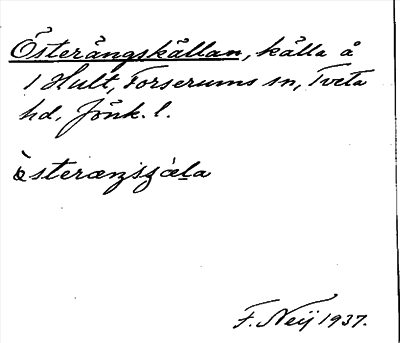 Österängskällan, källa å
1 Hult, Forserums sn, Tveta
hd, Jönk. l.
F. Neij 1937.